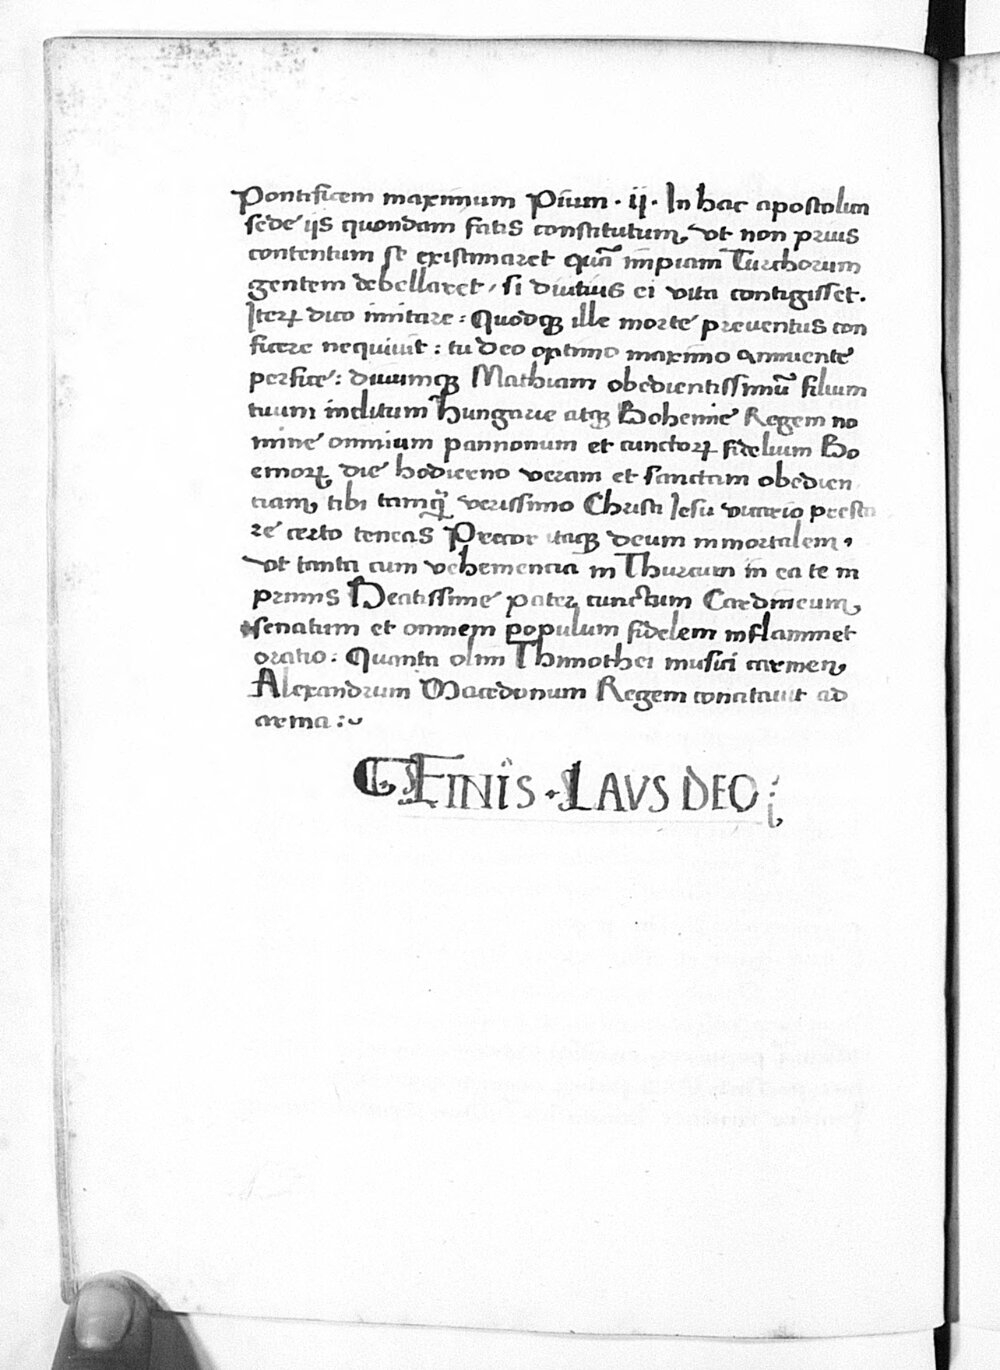 Pontificem maximum Pium · ii · In hac apostolica
sede iis quondam fatis constitutum, vt non prius
contentum se existimaret quā impiam Turchorum
gentem debellaret, si diutius ei vita contigisset.
Iterꝝ dico imitare: Quodqꝫ ille morte preuentus con
ficere nequiuit: tu deo optimo maximo annuente
perfice: diuumqꝫ Mathiam obedientissimū filium
tuum inclitum hungarie atqꝫ Bohemie Regem no
mine omnium pannonum et cunctorꝝ fidelium Bo
emorꝝ die hodierno veram et sanctam obedien
tiam, tibi tamꝗ̄ verissimo Christi Iesu vicario presta
re certo teneas Precor itaqꝫ deum inmortalem,
vt tanta cum vehemencia in Thurcum in ea te in
primis Beatissime pater, cunctum Cardineum,
senatum et omnem populum fidelem inflammet
oratio: Quanta olim Thimothei musici carmen,
Alexandrum Macedonum Regem concitauit ad
arma:~
FINIS · LAVS DEO